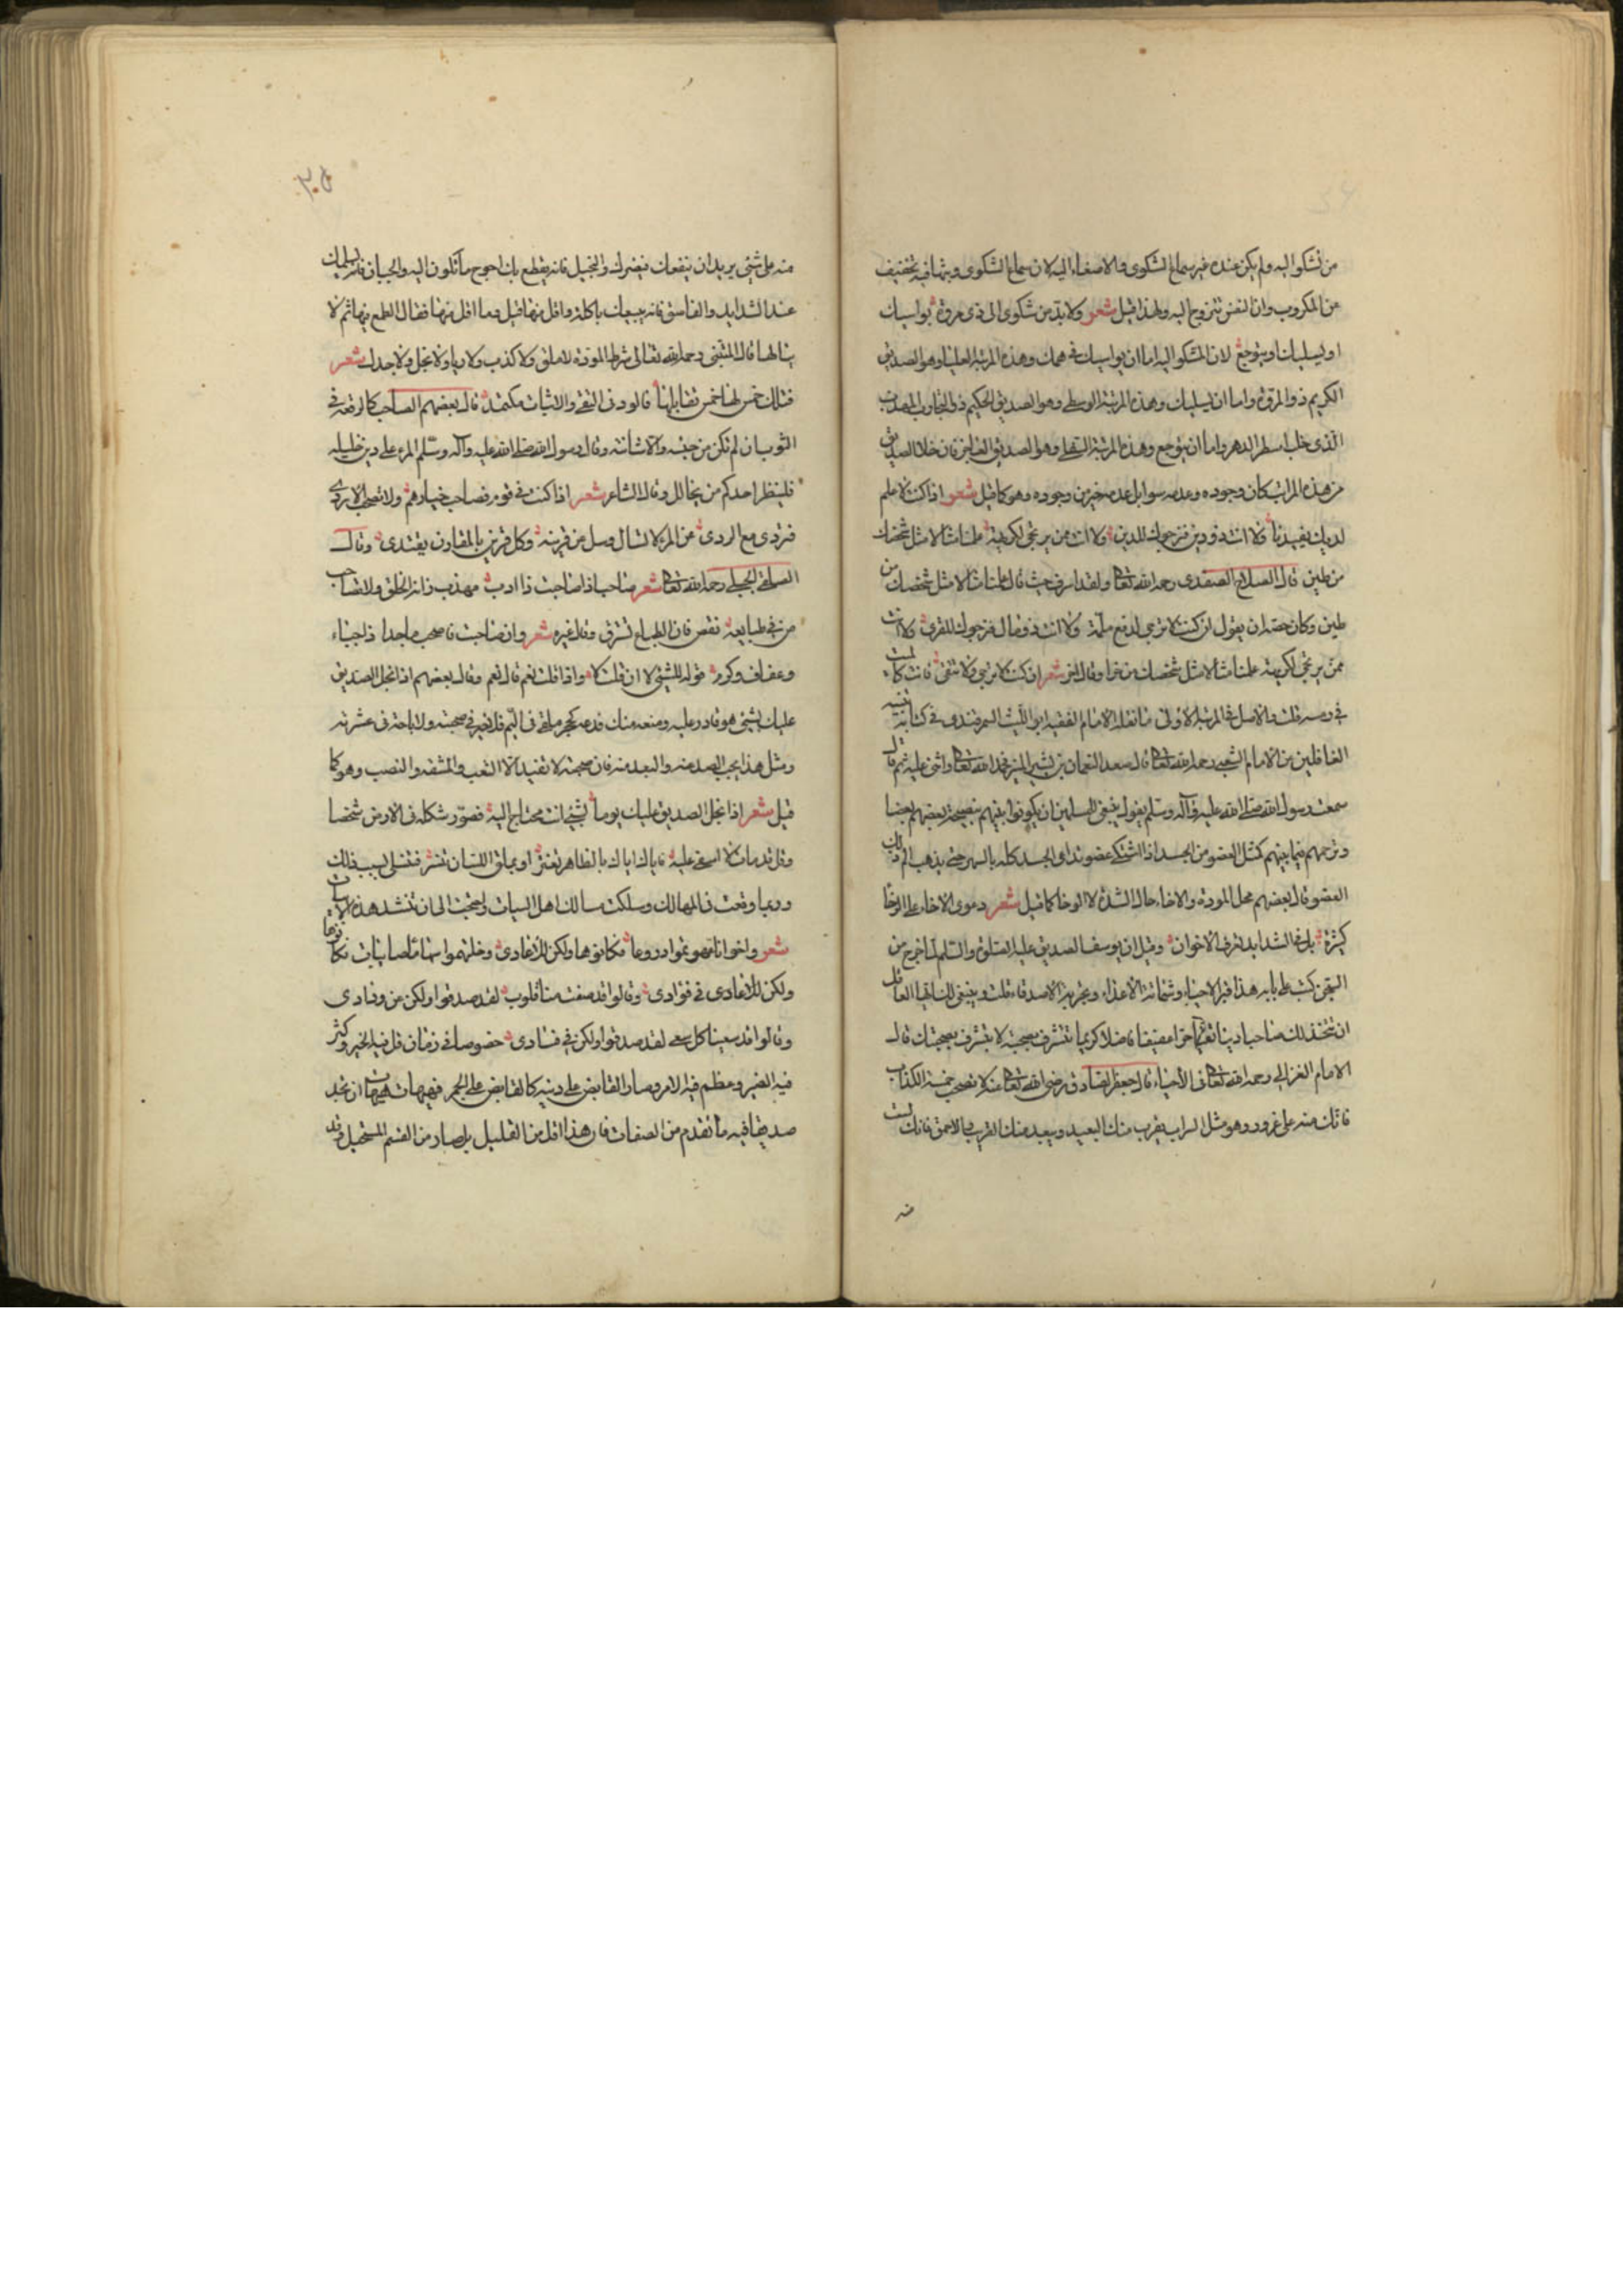 من تشكوا اليه ولم يكن عنده غير سماع الشكوى والاصغاء اليه لان سماع الشكوى وبثها فيه تخفيف
عن المكروب وان النفس تتروح اليه ولهذا قيل شعر ولا بد من شكوى الى ذى مروة يواسيك
او يسليك او يتوجع لان المشكو اليه اما ان يواسيك فى همك وهذه المرتبة العليا وهو الصديق
الكريم ذو المروة واما ان يسليك وهذه المرتبة الوسطى وهو الصديق الحكيم ذو التجارب المهذب
الذى حلب اسطر الدهر واما ان يتوجع وهذه المرتبة السفلى وهو الصديق العاجز فان خلا الصديق
من هذه المراتب كان وجوده وعدمه سوا بل عدمه خير من وجوده وهو كما قيل شعر اذا كنت لا علم
لديك يفيدنا ولا انت ذو دين فنرجوك للدين ولا انت ممن يرتجى لكريهة عملنا مثالا مثل شخصك
من طين قال الصلاح الصفدى رحمه الله تعالى ولقد اسرف حيث قال عملنا مثالا مثل شخصك من
طين وكان حقه ان يقول اذ كنت لا ترجى لدفع ملمة ولا انت ذو مال فنرجوك للقرى ولا انت
ممن يرتجى لكريهة عملنا مثالا مثل شخصك من خرا وقال اخر شعر ان كنت لا ترتجى ولا تتقى فانت كالميت
فى رمسه قلت والاصل فى المرتبة الاولى ما نقله الامام الفقيه ابو الليث السمرقندى فى كتابه تنبيه
الغافلين عن الامام الشعبى رحمه الله تعالى قال سعد النعمان بن بشير المنبر فحمد الله تعالى واثنى عليه ثم قال
سمعت رسول الله صلى الله عليه وآله وسلم يقول ينبغى للمسلمين ان يكونوا بينهم بنصيحة بعضهم بعضا
وترحمهم فيما بينهم كمثل العضو من الجسد اذا اشتكى عضو تداعى الجسد كله بالسهر حتى يذهب الم ذلك
العضو قال بعضهم محل المودة والاخاء حال الشدة لا الرخا كما قيل شعر دعوى الاخاء على الرخا
كثيرة بل فى الشدايد تعرف الاخوان وقيل ان يوسف الصديق عليه الصلوة والسلم لما خرج من
السجن كتب على بابه هذا قبر الاحياء وشماتة الاعداء وتجربة الاصدقاء قلت وينبغى لك ايها العاقل
ان تتخذ لك صاحبا دينا تقيا حرا عفيفا فاضلا كريما تتشرف بصحبته لا يتشرف بصحبتك قال
الامام الغزالى رحمه الله تعالى فى الاحياء قال جعفر الصادق رضى الله تعالى عنه لا تصحب خمسة الكذاب
فانك منه على غرور وهو مثل السراب يقرب منك البعيد ويبعد منك القريب والاحمق فانك لست
منه على شئ يريد ان ينفعك فيضرك والبخيل فانه يقطع بك احوج ما تكون اليه والجبان فانه يسلمك
عند الشدايد والفاسق فانه يبيعك باكلة واقل منها قيل وما اقل منها فقال الطمع فيها ثم لا
ينالها قال المتنبى رحمه الله تعالى شرط المودة لا ملق ولا كذب ولا رياء ولا بخل ولا جدل شعر
فتلك خمس لها خمس تقابلها قالو دنى النفى والاثبات مكتمل قال بعضهم الصاحب كالرقعة فى
الثوب ان لم تكن من جنسه والا شانته وقال رسول الله صلى الله عليه وآله وسلم المرء على دين خليله
فلينظر احدكم من يخالل وقال الشاعر شعر اذا كنت فى قوم فصاحب خيارهم ولا تصحب الاردى
فتردى مع الردى عن المرء لا تسال وسل عن قرينه وكل قرين بالمقارن يقتدى وقال
رحمه الله تعالى شعر صاحب اذا صاحبت ذا ادب مهذب زانه الخلق ولا تصاحب
من فى طبايعه نقص فان الطباع تسرق وقال غيره شعر وان صاحبت فاصحب ماجدا ذا حياء
وعفاف وكرم قوله للشئ لا ان قلت لا واذا قلت نعم قال نعم وقال بعضهم اذا بخل الصديق
عليك بشئ هو قادر عليه ومنعه منك فدعه كحجر ملقى فى اليم فلا خير فى صحبته ولا راحة فى عشرته
ومثل هذا يجب الصد عنه والبعد منه فان صحبته لا تفيد الا التعب والمشقة والنصب وهو كما
قيل شعر اذا بخل الصديق عليك يوما بشئ انت محتاج اليه فصور شكله فى الارض شخصا
وقل قد مات لا اسفى عليه فاياك اياك بالظاهر تغتر او بملق اللسان تنسر فتنسلى بسبب ذلك
وربما وقعت فى المهالك وسلكت مسالك اهل السيات واحتجت الى ان تنشد هذه الابيات
شعر واخوانا تخذتهموا دروعا فكانوها ولكن للاعادى وخلتهموا سهاما صايبات فكانوها
ولكن للاعادى فى فؤادى وقالوا قد صفت منا قلوب لقد صدقوا ولكن عن ودادى
وقالوا قد سعينا كل سعى لقد صدقوا ولكن فى فسادى خصوصا فى زمان قل فيه الخير وكثر
فيه الضير وعظم فيه الامر وصار القابض على دينه كالقابض على الجمر فهيهات هيهات ان تجد
صديقا فيه ما تقدم من الصفات فان هذا اقل من القليل بل صار من القسم المستحيل وقد